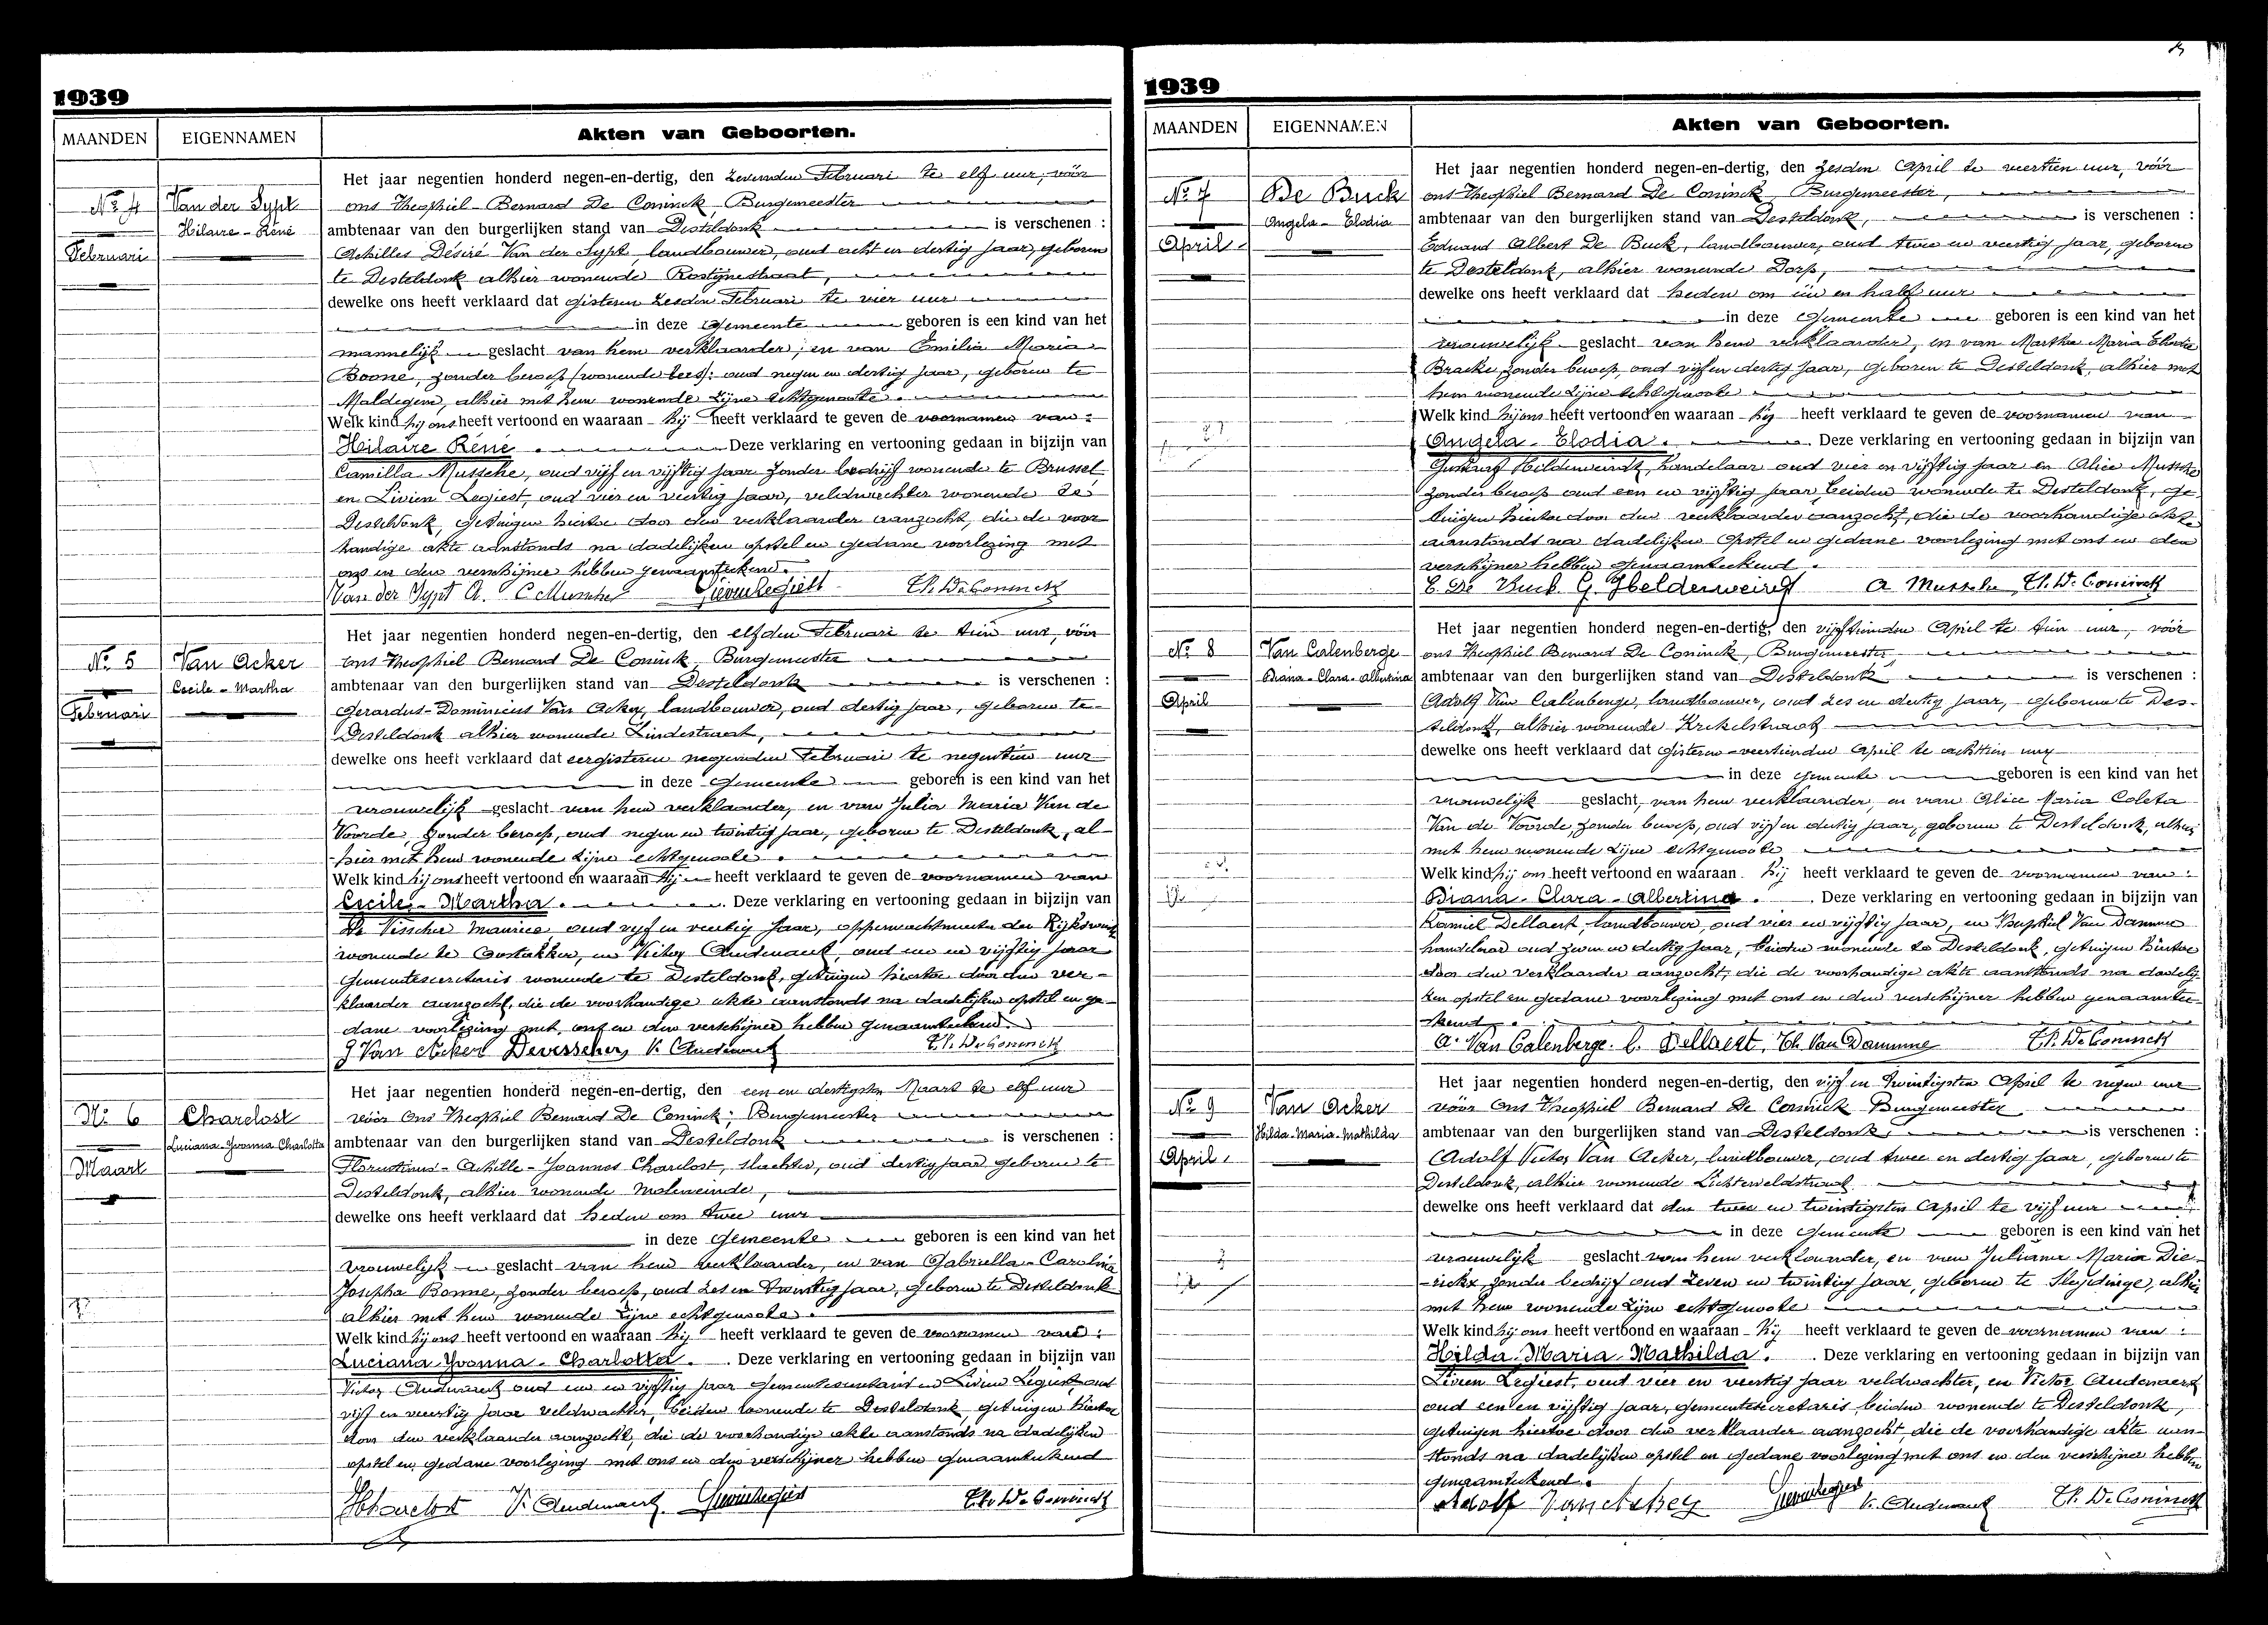 1939
MAANDEN
EIGENNAMEN
Akten van Geboorten.
Nº 4
Februari
Van der Sypt
Hilaire - René
Het jaar negentien honderd negen-en-dertig, den zevenden Februari te elf uur, vóór
ons Theophiel Bernard De Coninck, Burgemeester
ambtenaar van den burgerlijken stand van Desteldonk is verschenen :
Achilles Désiré Van der Sypt, landbouwer, oud acht en dertig jaar, geboren
te Desteldonk alhier wonende Rostijnestraat,
dewelke ons heeft verklaard dat gisteren zesden Februari te vier uur
in deze Gemeente geboren is een kind van het
mannelijk geslacht van hem verklaarder, en van Emilia Maria
Boone, zonder beroep (wonende lees): oud negen en dertig jaar, geboren te
Maldegem, alhier met hem wonende zijne echtgenoote.
Welk kind hij ons heeft vertoond en waaraan hij heeft verklaard te geven de voornamen van :
Hilaire René. Deze verklaring en vertooning gedaan in bijzijn van
Camilla Mussche, oud vijf en vijftig jaar zonder bedrijf wonende te Brussel,
en Livien Legiest, oud vier en veertig jaar, veldwachter wonende te
Desteldonk, getuigen hiertoe door den verklaarder aanzocht, die de voor-
handige akte aanstonds na dadelijken opstel en gedane voorlezing met
ons en den verschijner hebben genaamteekend.
Van der Sypt A. C Mussche Livien Legiest Th. De Coninck
Nº 5
Februari
Van Acker
Cecile - Martha
Het jaar negentien honderd negen-en-dertig, den elfden Februari te tien uur, vóór
ons Theophiel Bernard De Coninck, Burgemeester
ambtenaar van den burgerlijken stand van Desteldonk is verschenen :
Gerardus-Dominicus Van Acker, landbouwer, oud dertig jaar, geboren te
Desteldonk alhier wonende Lindestraat,
dewelke ons heeft verklaard dat eergisteren negenden Februari te negentien uur
in deze Gemeente geboren is een kind van het
vrouwelijk geslacht van hem verklaarder, en van Julia Maria Van de
Voorde, zonder beroep, oud negen en twintig jaar, geboren te Desteldonk, al-
hier met hem wonende zijne echtgenoote.
Welk kind hij ons heeft vertoond en waaraan hij heeft verklaard te geven de voornamen van
Cecile - Martha. Deze verklaring en vertooning gedaan in bijzijn van
De Visscher Maurice, oud vijf en veertig jaar, opperwachtmeester der Rijkswacht
wonende te Oostakker, en Victor Audenaert, oud een en vijftig jaar
Gemeentesecretaris wonende te Desteldonk, getuigen hiertoe door den ver-
klaarder aanzocht, die de voorhandige akte aanstonds na dadelijken opstel en ge-
dane voorlezing met ons en den verschijner hebben genaamteekend.
G Van Acker Devisscher, V. Audenaert Th. De Coninck
Nº 6
Maart
Charelost
Luciana-Yvonna Charlotta
Het jaar negentien honderd negen-en-dertig, den een en dertigsten Maart te elf uur
vóór Ons Theophiel Bernard De Coninck; Burgemeester
ambtenaar van den burgerlijken stand van Desteldonk is verschenen :
Florentinus-Achille-Joannes Charelost, slachter, oud dertig jaar geboren te
Desteldonk, alhier wonende Moleneinde,
dewelke ons heeft verklaard dat heden om twee uur
in deze Gemeente geboren is een kind van het
vrouwelijk geslacht van hem verklaarder, en van Gabriella-Carolina
Josepha Bonne, zonder beroep, oud zes en twintig jaar, geboren te Desteldonk
alhier met hem wonende zijne echtgenoote.
Welk kind hij ons heeft vertoond en waaraan hij heeft verklaard te geven de voornamen van :
Luciana-Yvonna-Charlotta. Deze verklaring en vertooning gedaan in bijzijn van
Victor Audenaert oud een en vijftig jaar Gemeentesecretaris en Livien Legiest oud
vijf en veertig jaar veldwachter, beiden wonende te Desteldonk, getuigen hiertoe
door den verklaarder aanzocht, die de voorhandige akte aanstonds na dadelijken
opstel en gedane voorlezing met ons en den verschijner hebben genaamteekend
Charelost V. Audenaert Livien Legiest Th. De Coninck
1939
MAANDEN
EIGENNAMEN
Akten van Geboorten.
Nº 7
April
De Buck
Angela - Elodia
Het jaar negentien honderd negen-en-dertig, den zesden April te veertien uur, vóór
ons Theophiel Bernard De Coninck, Burgemeester,
ambtenaar van den burgerlijken stand van Desteldonk, is verschenen :
Eduard Albert De Buck, landbouwer, oud twee en veertig jaar, geboren
te Desteldonk, alhier wonende Dorp,
dewelke ons heeft verklaard dat heden om één en half uur
in deze Gemeente geboren is een kind van het
vrouwelijk geslacht van hem verklaarder, en van Martha Maria Elodie
Bracke, zonder beroep, oud vijf en dertig jaar, geboren te Desteldonk, alhier met
hem wonende zijne echtgenoote
Welk kind hij ons heeft vertoond en waaraan hij heeft verklaard te geven de voornamen van
Angela - Elodia. Deze verklaring en vertooning gedaan in bijzijn van
Gustaaf Helderweirdt, handelaar oud vier en vijftig jaar en Alice Mussche
zonder beroep oud een en vijftig jaar, beiden wonende te Desteldonk, ge-
tuigen hiertoe door den verklaarder aanzocht, die de voorhandige akte
aanstonds na dadelijken opstel en gedane voorlezing met ons en den
verschijner hebben genaamteekend.
E. De Buck. G. Helderweirdt A Mussche Th. De Coninck
Nº 8
April
Van Calenberge
Diana-Clara-Albertina
Het jaar negentien honderd negen-en-dertig, den vijftienden April te tien uur, vóór
ons Theophiel Bernard De Coninck, Burgemeester,
ambtenaar van den burgerlijken stand van Desteldonk is verschenen :
Adolf Van Calenberge, landbouwer, oud zes en dertig jaar, geboren te Des-
teldonk, alhier wonende Krekelstraat
dewelke ons heeft verklaard dat gisteren veertienden April te achttien uur
in deze Gemeente geboren is een kind van het
vrouwelijk geslacht, van hem verklaarder, en van Alice Maria Coleta
Van de Voorde, zonder beroep, oud vijf en dertig jaar, geboren te Desteldonk, alhier
met hem wonende zijne echtgenoote
Welk kind hij ons heeft vertoond en waaraan hij heeft verklaard te geven de voornamen van :
Diana - Clara - Albertina. Deze verklaring en vertooning gedaan in bijzijn van
Kamiel Dellaert, landbouwer, oud vier en vijftig jaar, en Theophiel Van Damme
handelaar oud zeven en dertig jaar, beiden wonende te Desteldonk, getuigen hiertoe
door den verklaarder aanzocht, die de voorhandige akte aanstonds na dadelij-
ken opstel en gedane voorlezing met ons en den verschijner hebben genaamtee-
kend.
A. Van Calenberge. C. Dellaert, Th. Van Damme Th. De Coninck
Nº 9
April
Van Acker
Hilda-Maria-Mathilda
Het jaar negentien honderd negen-en-dertig, den vijf en twintigsten April te negen uur
vóór Ons Theophiel Bernard De Coninck Burgemeester
ambtenaar van den burgerlijken stand van Desteldonk, is verschenen :
Adolf Victor Van Acker, landbouwer, oud twee en dertig jaar, geboren te
Desteldonk, alhier wonende Lichterveldstraat
dewelke ons heeft verklaard dat den twee en twintigsten April te vijf uur
in deze Gemeente geboren is een kind van het
vrouwelijk geslacht van hem verklaarder, en van Juliana Maria Die-
rickx, zonder bedrijf oud zeven en twintig jaar, geboren te Sleydinge, alhier
met hem wonende zijne echtgenoote
Welk kind hij ons heeft vertoond en waaraan hij heeft verklaard te geven de voornamen van :
Hilda-Maria-Mathilda. Deze verklaring en vertooning gedaan in bijzijn van
Livien Legiest, oud vier en veertig jaar veldwachter, en Victor Audenaert
oud een en vijftig jaar, gemeentesecretaris, beiden wonende te Desteldonk,
getuigen hiertoe door den verklaarder aanzocht, die de voorhandige akte aan-
stonds na dadelijken opstel en gedane voorlezing met ons en den verschijner hebben
genaamteekend.
Adolf Van Acker Livien Legiest V. Audenaert Th. De Coninck